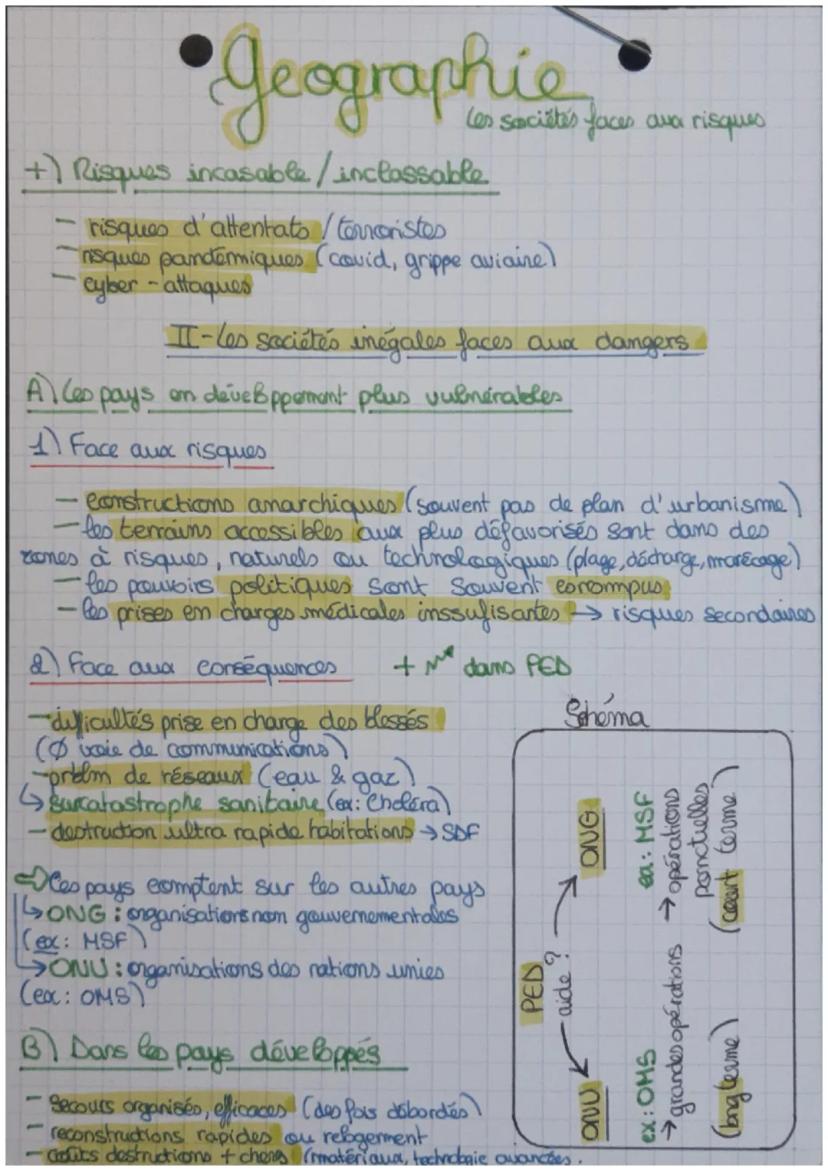 Geographie
les sociétés faces aux risques
+) Risques incasable/inclassable
- risques d'attentats/terroristes
- risques pandémiques (covid, grippe aviaire)
- cyber-attaques
II-Les sociétés inégales faces aux dangers
A) Les pays en développement plus vulnérables
1) Face aux risques
- constructions anarchiques (souvent pas de plan d'urbanisme)
- les terrains accessibles aux plus défavorisés sont dans des
zones à risques, naturels ou technologiques (plage, décharge, marécage)
- les pouvoirs politiques sont souvent corrompus
- les prises en charges médicales inssufisantes → risques secondaires
2) Face aux conséquences + dans PED
- difficultés prise en charge des blessés
(Ø voie de communications)
- prblm de réseaux (eau & gaz)
↳ surcatastrophe sanitaire (ex: Choléra)
- destruction ultra rapide habitations → SDF
⇨ Ces pays comptent sur les autres pays
↳ ONG : organisations non gouvernementales
(ex: MSF)
↳ ONU : organisations des nations unies
(ex: OMS)
B) Dans les pays développés
- secours organisés, efficaces (des fois débordés)
- reconstructions rapides ou relogement
- coûts destructions + chers (matériaux, technologie avancées.
Schéma
PED
aide ?
ONU
ONG
ex: OMS
→ grandes opérations
(long terme)
ex: MSF
→ opérations
ponctuelles
(court terme)